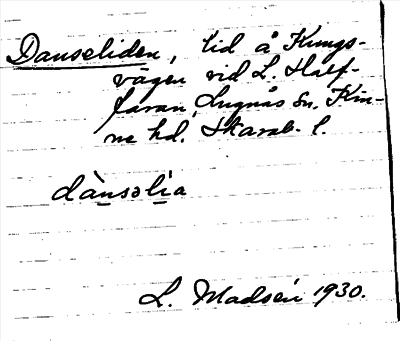 Danseliden, lid å Kungs-
vägen vid L. Half-
faran, Lugnås sn. Kin-
ne hd. Skarab. l.
dànsəlìa
L. Madsén 1930.